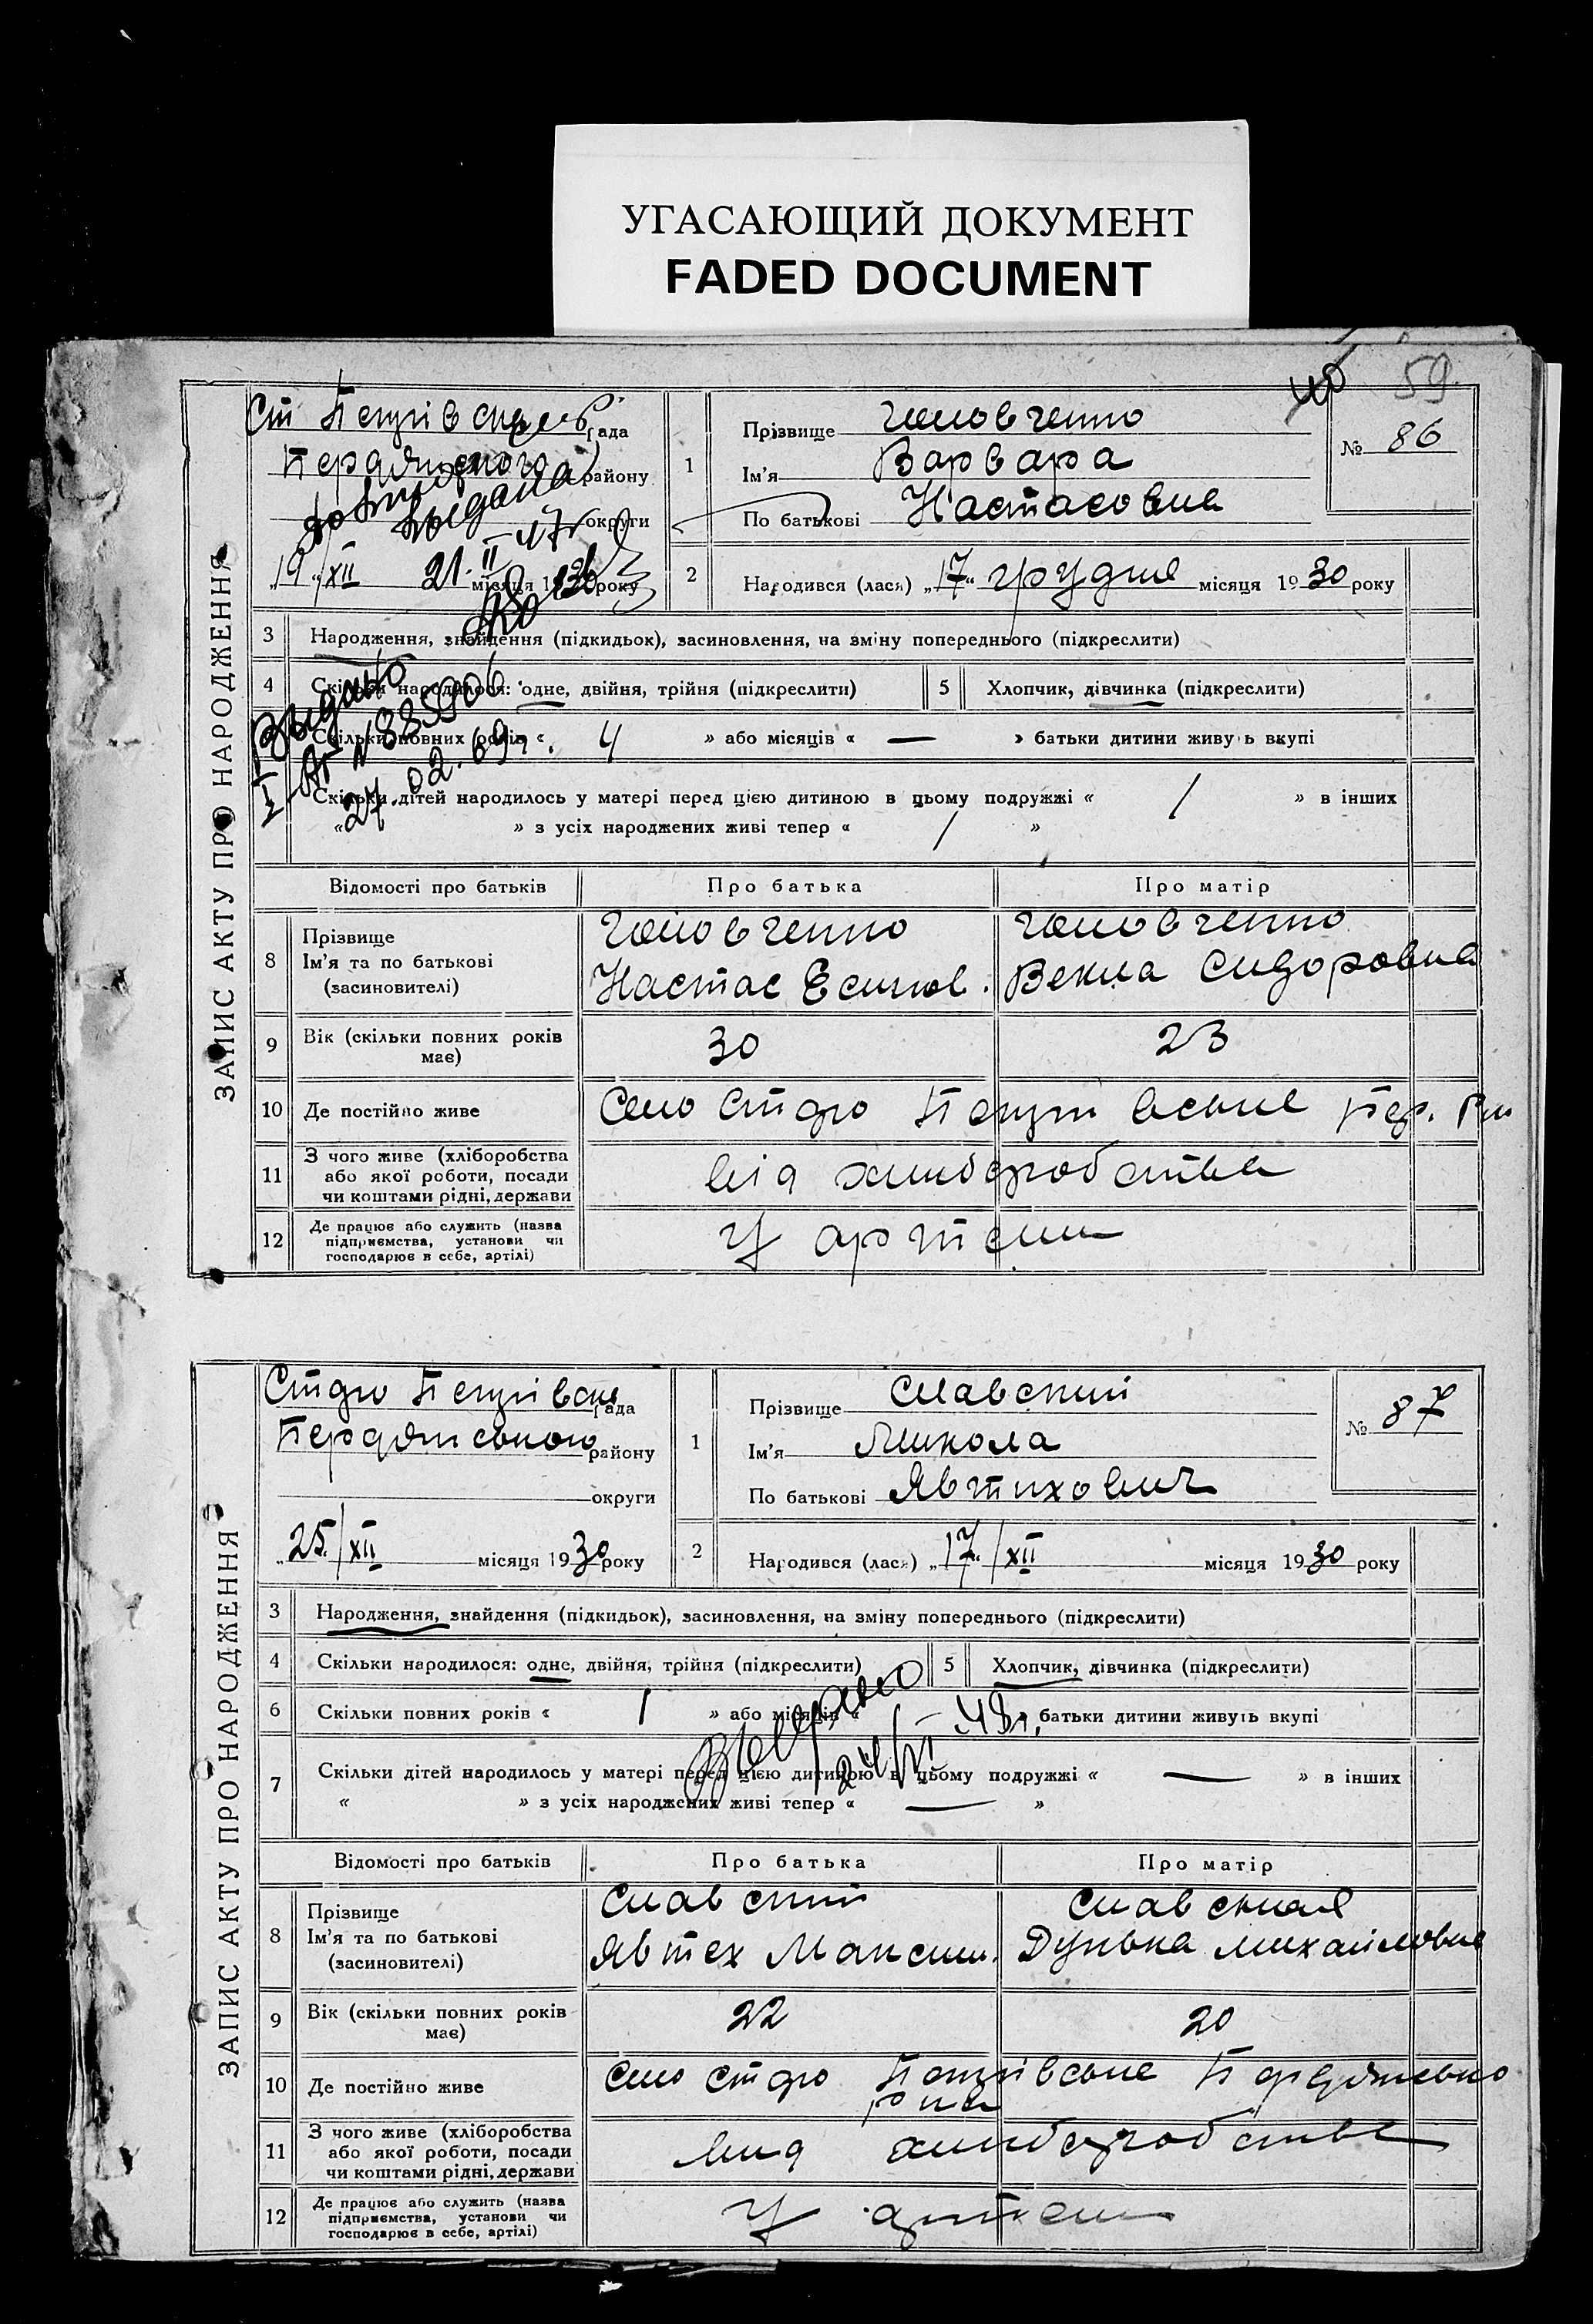 УГАСАЮЩИЙ ДОКУМЕНТ
FADED DOCUMENT
59
ЗАПИС АКТУ ПРО НАРОДЖЕННЯ
Ст Петрівська рада
Бердянського району
округи
довидка выдана
21.II-47г
„19“/XII місяця 1930 року
№ 86
1
Прізвище Головченко
Ім'я Варвара
По батькові Настасовна
2
Народився (лася) „17“ грудня місяця 1930 року
3 Народження, знайдення (підкидьок), засиновлення, на зміну попереднього (підкреслити)
4 Скільки народилося: одне, двійня, трійня (підкреслити) 5 Хлопчик, дівчинка (підкреслити)
Скільки повних років « 4 » або місяців « — » батьки дитини живуть вкупі
Скільки дітей народилось у матері перед цією дитиною в цьому подружжі « 1 » в інших
« » з усіх народжених живі тепер « 1 »
Выдано
27.02.69г.
Відомості про батьків Про батька Про матір
8 Прізвище Ім'я та по батькові (засиновителі)
Головченко
Настас Есипов.
Головченко
Векла Сидоровна
9 Вік (скільки повних років має) 30 23
10 Де постійно живе Село Старо Петрівське Бер. Рн
11 З чого живе (хліборобства або якої роботи, посади чи коштами рідні, держави від хлиборобства
12 Де працює або служить (назва підприємства, установи чи господарює в себе, артілі) У артели
ЗАПИС АКТУ ПРО НАРОДЖЕННЯ
Старо Петрівська рада
Бердянського району
округи
„25“/XII місяця 1930 року
№ 87
1
Прізвище Славский
Ім'я Микола
По батькові Явтихович
2
Народився (лася) „17“/XII місяця 1930 року
3 Народження, знайдення (підкидьок), засиновлення, на зміну попереднього (підкреслити)
4 Скільки народилося: одне, двійня, трійня (підкреслити) 5 Хлопчик, дівчинка (підкреслити)
6 Скільки повних років « 1 » або місяців « » батьки дитини живуть вкупі
7 Скільки дітей народилось у матері перед цією дитиною в цьому подружжі « — » в інших
« » з усіх народжених живі тепер « — »
Відомості про батьків Про батька Про матір
8 Прізвище Ім'я та по батькові (засиновителі)
Славский
Явтех Максим.
Славская
Дунька Михайловна
9 Вік (скільки повних років має) 22 20
10 Де постійно живе Село Старо Петрівське Бердянсько
р на
11 З чого живе (хліборобства або якої роботи, посади чи коштами рідні, держави вид хлиборобства
12 Де працює або служить (назва підприємства, установи чи господарює в себе, артілі) У артели